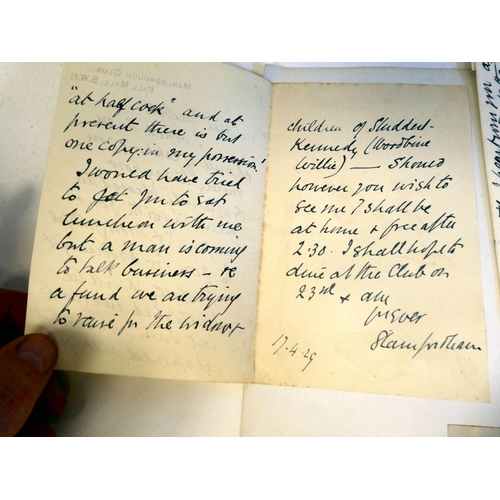 MARLBOROUGH CLUB,
PALL MALL. S.W.1.
"at half cock" and at
present there is but
one copy: in my possession!
I would have tried
to get you to eat
luncheon with me
but a man is coming
to talk business – re
a fund we are trying
to raise for the widow &
children of Studdert-
Kennedy (Woodbine
Willie) — Should
however you wish to
see me I shall be
at home & free after
2.30. I shall hope to
dine at the Club on
23rd & am
Yrs Ever
Stamfordham
17.4.29